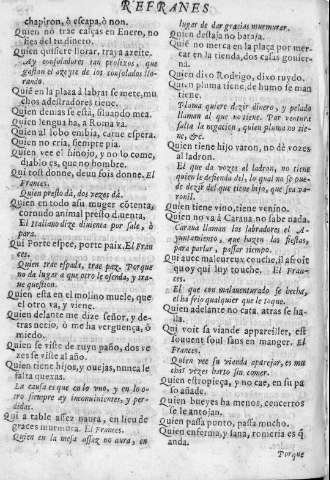 REFRANES
chapiron, ò escapa, ò non.
Quien no trae calças en Enero, no
fies del tu dinero.
Quien quisiere llorar, traya azeite.
Ay consoladores tan prolixos, que
gastan el azeyte de los consolados llo-
rando.
Quiē en la plaça à labrar se mete, mu
chos adestradores tiene.
Quien demās te està, situando mea.
Quien lengua ha, a Roma va.
Quien al lobo embia, carne espera.
Quien no cria, siempre pia.
Quien vee el hinojo, y no lo come,
diablo es, que no hombre.
Qui tost donne, deux fois donne. El
Frances.
Quien presto dà, dos vezes dà.
Quien en todo a su muger cōtenta,
cornudo animal presto
El Italiano dize
para.
Qui Porte espee, porte paix. El Fran
ces.
Quien trae espada, trae paz. Porque
no da lugar a que otro le ofenda, y
Quien està en el molino muele, que
el otro va, y viene.
Quien delante me dize señor, y de-
tras necio, ò me ha verguença, ò
miedo.
Quien se viste de ruyn paño, dos ve-
zes se viste al año.
Quien tiene hijos, y ouejas, nunca le
falta quexas.
La causa es que en lo vno, y en lo o-
tro siempre ay inconuinientes, y per-
didas.
Qui a table assez naura, en lieu de
graces murmura. El Frances.
Quien en la mesa assaz no aura, en
lugar de dar gracias murmurar.
Quien destaja no baraja.
Quiē no merca en la plaça por mer-
car en la tienda, dos casas gouier-
na.
Quien dixo Rodrigo, dixo ruydo.
Quien pluma tiene, de humo se man
tiene.
Pluma quiere dezir dinero, y pelado
llaman al que no tiene. Por ventura
falta la negacion, quien pluma no tie-
ne, &c.
Quien tiene hijo varon, no dè vozes
al ladron.
El que da vozes al ladron, no tiene
quien le defienda del, lo qual no se pue-
de dezir del que tiene hijo, que sea va-
ronil.
Quien tiene vino, tiene venino.
Quien no và à Carana no sabe nada.
Carana llaman los labradores el A-
yuntamiento, que hazen las fiestas,
para parlar, y passar tiempo.
Qui auec maleureux couche, il
quoy qui luy touche. El Fran-
ces.
El que con malauenturado se hecha,
el ha frio qualquier que le toque.
Quien adelante no cata, atras se ha-
lla.
Qui voit sa viande appareiller, est
souuent soul sans en manger. El
Frances.
Quien vee su vianda aparejar, es mu
chas vezes harto sin comer.
Quien estropieça, y no cae, en su pas
so añade.
Quien bueyes ha menos, concerros
se le antojan.
Quien passa punto, passa mucho.
Quien enferma, y sana, romeria es q̄
anda.
Porque